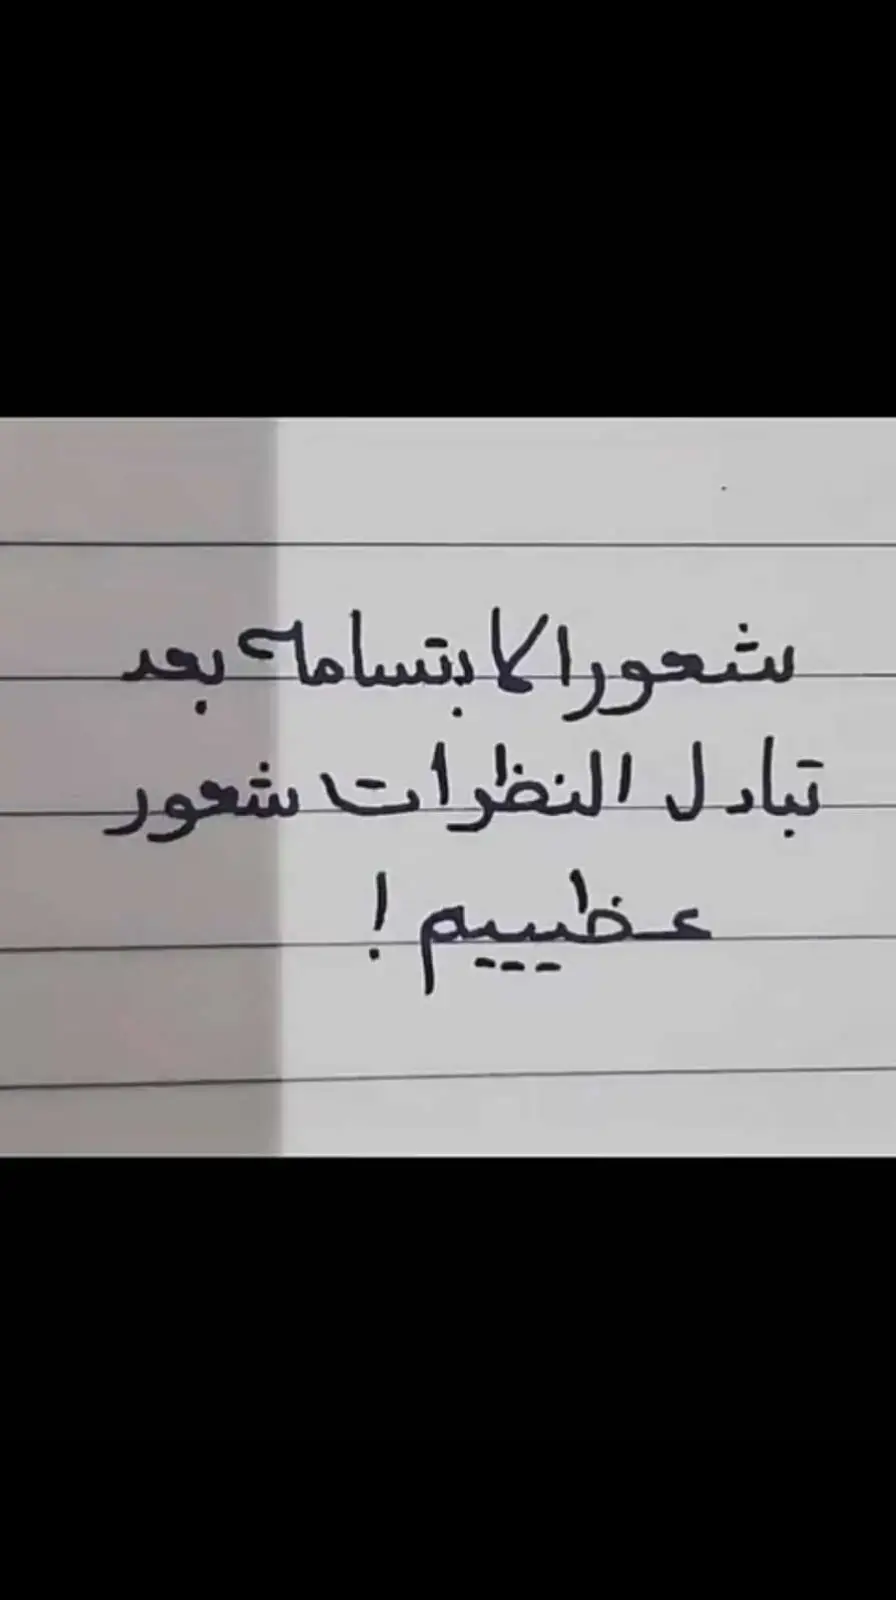 شعور الابتسامة بعد
تبادل النظرات شعور
عظيييم !